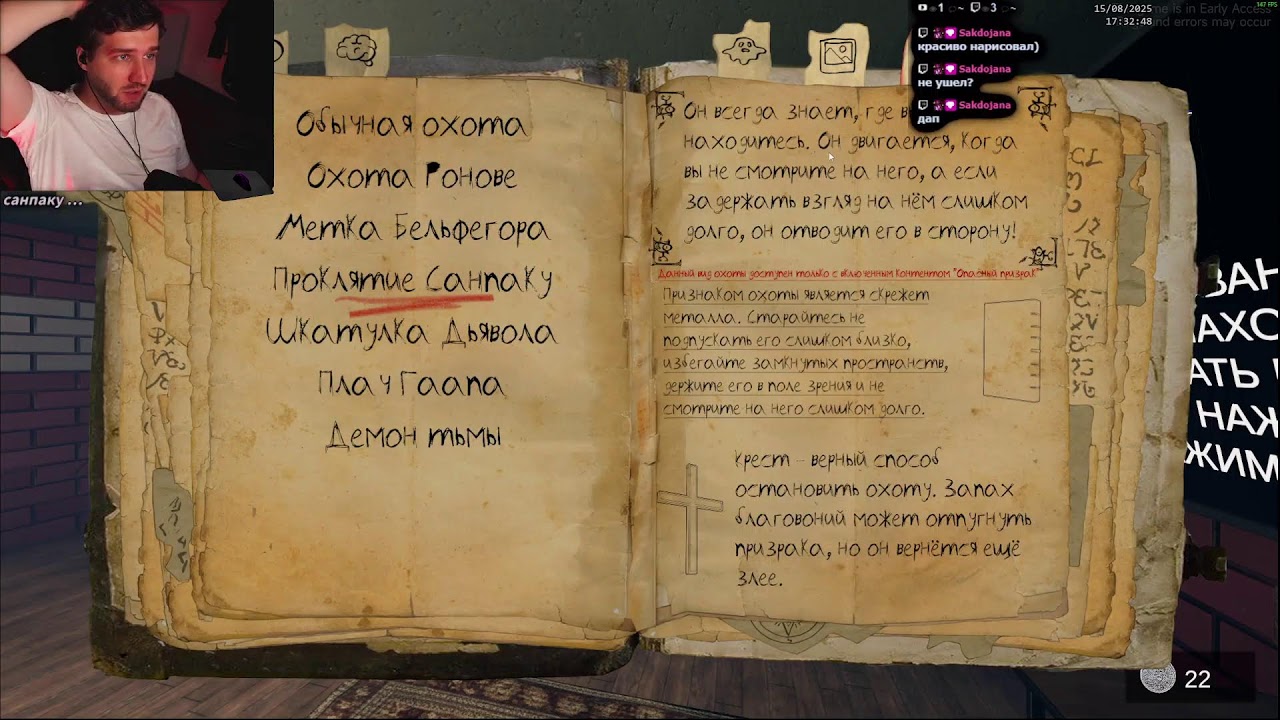 санпаку ...
Обычная охота
Охота Ронове
Метка Бельфегора
Проклятие Санпаку
Шкатулка Дьявола
Плач Гаапа
Демон тьмы
Он всегда знает, где
находитесь. Он двигается, когда
вы не смотрите на него, а если
задержать взгляд на нём слишком
долго, он отводит его в сторону!
Данный вид охоты доступен только с включенным контентом "Опасный призрак"
Признаком охоты является скрежет
металла. Старайтесь не
подпускать его слишком близко,
избегайте замкнутых пространств,
держите его в поле зрения и не
смотрите на него слишком долго.
Крест - верный способ
остановить охоту. Запах
благовоний может отпугнуть
призрака, но он вернётся ещё
злее.
1 ~ 3 ~
Sakdojana
красиво нарисовал)
Sakdojana
не ушел?
Sakdojana
дап
147 FPS
15/08/2025
me is in Early Access
17:32:48
and errors may occur
НАЖ
ЖИМ
22